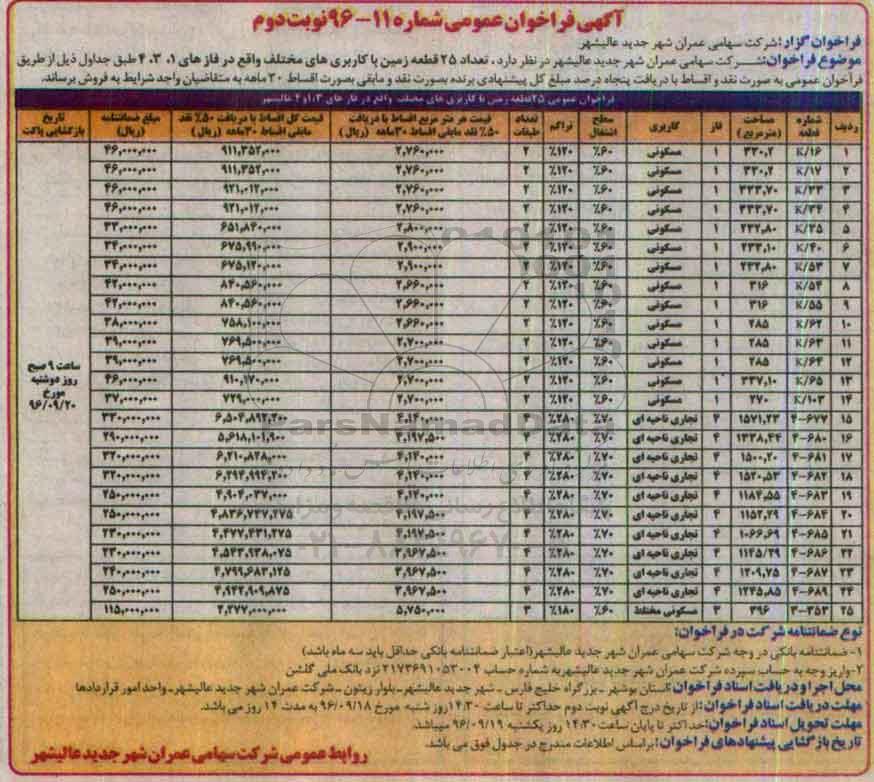 آگهی فراخوان عمومی شماره ۱۱-۹۶ نوبت دوم
فراخوان گزار: شرکت سهامی عمران شهر جدید عالیشهر
موضوع فراخوان: شرکت سهامی عمران شهر جدید عالیشهر در نظر دارد، تعداد ۲۵ قطعه زمین با کاربری های مختلف واقع در فاز های ۱، ۳، ۴ طبق جداول ذیل از طریق
فراخوان عمومی به صورت نقد و اقساط با دریافت پنجاه درصد مبلغ کل پیشنهادی برنده بصورت نقد و مابقی بصورت اقساط ۳۰ ماهه به متقاضیان واجد شرایط به فروش برساند.
فراخوان عمومی ۲۵ قطعه زمین با کاربری های مختلف واقع در فاز های ۱،۳ و ۴ عالیشهر
ردیف | شماره قطعه | مساحت (مترمربع) | فاز | کاربری | سطح اشتغال | تراکم | تعداد طبقات | قیمت هر متر مربع اقساط با دریافت ۵۰٪ نقد مابقی اقساط ۳۰ماهه (ریال) | قیمت کل اقساط با دریافت ۵۰٪ نقد مابقی اقساط ۳۰ماهه (ریال) | مبلغ ضمانتنامه (ریال) | تاریخ بازگشایی پاکت
۱ | K/۱۶ | ۳۳۰,۲ | ۱ | مسکونی | ٪۶۰ | ٪۱۲۰ | ۲ | ۲,۷۶۰,۰۰۰ | ۹۱۱,۳۵۲,۰۰۰ | ۴۶,۰۰۰,۰۰۰
۲ | K/۱۷ | ۳۳۰,۲ | ۱ | مسکونی | ٪۶۰ | ٪۱۲۰ | ۲ | ۲,۷۶۰,۰۰۰ | ۹۱۱,۳۵۲,۰۰۰ | ۴۶,۰۰۰,۰۰۰
۳ | K/۳۳ | ۳۳۳,۷۰ | ۱ | مسکونی | ٪۶۰ | ٪۱۲۰ | ۲ | ۲,۷۶۰,۰۰۰ | ۹۲۱,۰۱۲,۰۰۰ | ۴۶,۰۰۰,۰۰۰
۴ | K/۳۴ | ۳۳۳,۷۰ | ۱ | مسکونی | ٪۶۰ | ٪۱۲۰ | ۲ | ۲,۷۶۰,۰۰۰ | ۹۲۱,۰۱۲,۰۰۰ | ۴۶,۰۰۰,۰۰۰
۵ | K/۳۵ | ۲۳۲,۸۰ | ۱ | مسکونی | ٪۶۰ | ٪۱۲۰ | ۲ | ۲,۸۰۰,۰۰۰ | ۶۵۱,۸۴۰,۰۰۰ | ۳۳,۰۰۰,۰۰۰
۶ | K/۴۰ | ۲۳۳,۱۰ | ۱ | مسکونی | ٪۶۰ | ٪۱۲۰ | ۲ | ۲,۹۰۰,۰۰۰ | ۶۷۵,۹۹۰,۰۰۰ | ۳۴,۰۰۰,۰۰۰
۷ | K/۵۳ | ۲۳۲,۸۰ | ۱ | مسکونی | ٪۶۰ | ٪۱۲۰ | ۲ | ۲,۹۰۰,۰۰۰ | ۶۷۵,۱۲۰,۰۰۰ | ۳۴,۰۰۰,۰۰۰
۸ | K/۵۴ | ۳۱۶ | ۱ | مسکونی | ٪۶۰ | ٪۱۲۰ | ۲ | ۲,۶۶۰,۰۰۰ | ۸۴۰,۵۶۰,۰۰۰ | ۴۲,۰۰۰,۰۰۰
۹ | K/۵۵ | ۳۱۶ | ۱ | مسکونی | ٪۶۰ | ٪۱۲۰ | ۲ | ۲,۶۶۰,۰۰۰ | ۸۴۰,۵۶۰,۰۰۰ | ۴۲,۰۰۰,۰۰۰
۱۰ | K/۶۲ | ۲۸۵ | ۱ | مسکونی | ٪۶۰ | ٪۱۲۰ | ۲ | ۲,۶۶۰,۰۰۰ | ۷۵۸,۱۰۰,۰۰۰ | ۳۸,۰۰۰,۰۰۰
۱۱ | K/۶۳ | ۲۸۵ | ۱ | مسکونی | ٪۶۰ | ٪۱۲۰ | ۲ | ۲,۷۰۰,۰۰۰ | ۷۶۹,۵۰۰,۰۰۰ | ۳۹,۰۰۰,۰۰۰
۱۲ | K/۶۴ | ۲۸۵ | ۱ | مسکونی | ٪۶۰ | ٪۱۲۰ | ۲ | ۲,۷۰۰,۰۰۰ | ۷۶۹,۵۰۰,۰۰۰ | ۳۹,۰۰۰,۰۰۰
۱۳ | K/۶۵ | ۳۳۷,۱۰ | ۱ | مسکونی | ٪۶۰ | ٪۱۲۰ | ۲ | ۲,۷۰۰,۰۰۰ | ۹۱۰,۱۷۰,۰۰۰ | ۴۶,۰۰۰,۰۰۰
۱۴ | K/۱۰۳ | ۲۷۰ | ۱ | مسکونی | ٪۶۰ | ٪۱۲۰ | ۲ | ۲,۷۰۰,۰۰۰ | ۷۲۹,۰۰۰,۰۰۰ | ۳۷,۰۰۰,۰۰۰
۱۵ | ۴-۶۷۷ | ۱۵۷۱,۲۳ | ۴ | تجاری ناحیه ای | ٪۷۰ | ٪۲۸۰ | ۴ | ۴,۱۴۰,۰۰۰ | ۶,۵۰۴,۸۹۲,۲۰۰ | ۳۳۰,۰۰۰,۰۰۰
۱۶ | ۴-۶۸۰ | ۱۳۳۸,۴۴ | ۴ | تجاری ناحیه ای | ٪۷۰ | ٪۲۸۰ | ۴ | ۴,۱۹۷,۵۰۰ | ۵,۶۱۸,۱۰۱,۹۰۰ | ۲۹۰,۰۰۰,۰۰۰
۱۷ | ۴-۶۸۱ | ۱۵۰۰,۲۰ | ۴ | تجاری ناحیه ای | ٪۷۰ | ٪۲۸۰ | ۴ | ۴,۱۴۰,۰۰۰ | ۶,۲۱۰,۸۲۸,۰۰۰ | ۳۲۰,۰۰۰,۰۰۰
۱۸ | ۴-۶۸۲ | ۱۵۲۰,۵۳ | ۴ | تجاری ناحیه ای | ٪۷۰ | ٪۲۸۰ | ۴ | ۴,۱۴۰,۰۰۰ | ۶,۲۹۴,۹۹۴,۲۰۰ | ۳۲۰,۰۰۰,۰۰۰
۱۹ | ۴-۶۸۳ | ۱۱۸۴,۵۵ | ۴ | تجاری ناحیه ای | ٪۷۰ | ٪۲۸۰ | ۴ | ۴,۱۴۰,۰۰۰ | ۴,۹۰۴,۰۳۷,۰۰۰ | ۲۵۰,۰۰۰,۰۰۰
۲۰ | ۴-۶۸۴ | ۱۱۵۲,۲۹ | ۴ | تجاری ناحیه ای | ٪۷۰ | ٪۲۸۰ | ۴ | ۴,۱۹۷,۵۰۰ | ۴,۸۳۶,۷۳۷,۲۷۵ | ۲۵۰,۰۰۰,۰۰۰
۲۱ | ۴-۶۸۵ | ۱۰۶۶,۶۹ | ۴ | تجاری ناحیه ای | ٪۷۰ | ٪۲۸۰ | ۴ | ۴,۱۹۷,۵۰۰ | ۴,۴۷۷,۴۳۱,۲۷۵ | ۲۳۰,۰۰۰,۰۰۰
۲۲ | ۴-۶۸۶ | ۱۱۴۵/۲۹ | ۴ | تجاری ناحیه ای | ٪۷۰ | ٪۲۸۰ | ۴ | ۳,۹۶۷,۵۰۰ | ۴,۵۴۳,۹۳۸,۰۷۵ | ۲۳۰,۰۰۰,۰۰۰
۲۳ | ۴-۶۸۷ | ۱۲۰۹,۷۵ | ۴ | تجاری ناحیه ای | ٪۷۰ | ٪۲۸۰ | ۴ | ۳,۹۶۷,۵۰۰ | ۴,۷۹۹,۶۸۳,۱۲۵ | ۲۴۰,۰۰۰,۰۰۰
۲۴ | ۴-۶۸۹ | ۱۲۴۵,۸۵ | ۴ | تجاری ناحیه ای | ٪۷۰ | ٪۲۸۰ | ۴ | ۳,۹۶۷,۵۰۰ | ۴,۹۴۲,۹۰۹,۸۷۵ | ۲۵۰,۰۰۰,۰۰۰
۲۵ | ۳-۲۵۳ | ۳۹۶ | ۳ | مسکونی مختلط | ٪۶۰ | ٪۱۸۰ | ۳ | ۵,۷۵۰,۰۰۰ | ۲,۲۷۷,۰۰۰,۰۰۰ | ۱۱۵,۰۰۰,۰۰۰
ساعت ۹ صبح
روز دوشنبه
مورخ
۹۶/۰۹/۲۰
نوع ضمانتنامه شرکت در فراخوان:
۱- ضمانتنامه بانکی در وجه شرکت سهامی عمران شهر جدید عالیشهر (اعتبار ضمانتنامه بانکی حداقل باید سه ماه باشد)
۲- واریز وجه به حساب سپرده شرکت عمران شهر جدید عالیشهر به شماره حساب ۲۱۷۳۶۹۱۰۵۳۰۰۴ نزد بانک ملی گلشن
محل اجرا و دریافت اسناد فراخوان: استان بوشهر - بزرگراه خلیج فارس - شهر جدید عالیشهر - بلوار زیتون - شرکت عمران شهر جدید عالیشهر - واحد امور قراردادها
مهلت دریافت اسناد فراخوان: از تاریخ درج آگهی نوبت دوم حداکثر تا ساعت ۱۴:۳۰ روز شنبه مورخ ۹۶/۰۹/۱۸ به مدت ۱۴ روز می باشد.
مهلت تحویل اسناد فراخوان: حداکثر تا پایان ساعت ۱۴:۳۰ روز یکشنبه ۹۶/۰۹/۱۹ میباشد.
تاریخ بازگشایی پیشنهادهای فراخوان: براساس اطلاعات مندرج در جدول فوق می باشد.
روابط عمومی شرکت سهامی عمران شهر جدید عالیشهر